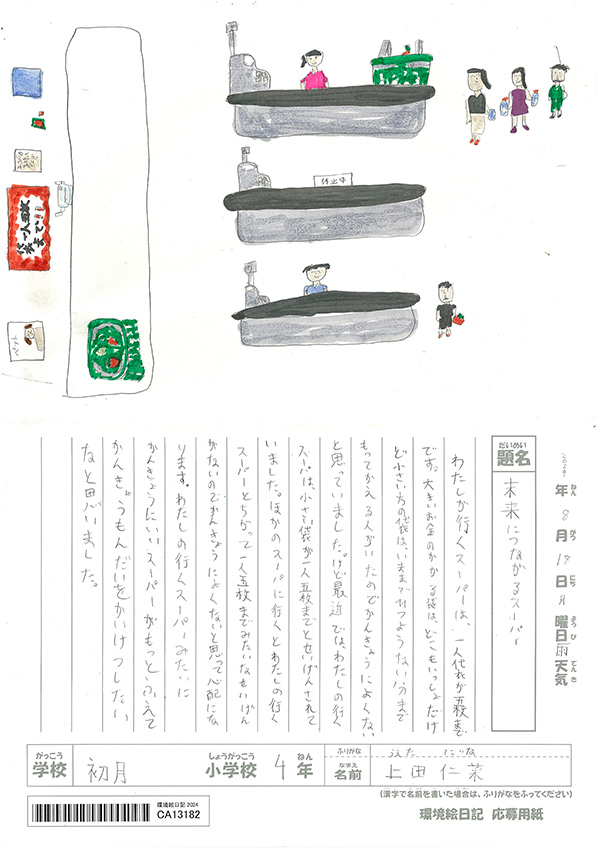 休止中
代表一人五枚まで!!
2024年8月18日月曜日雨天気
ねん がつ にち ようび てんき
だいめい
題名
未来につながるスーパー
わたしが行くスーパーは、一人代表が五枚まで
です。大きいお金のかかる袋は、どこもいっしょだけ
ど小さい方の袋は、いままでひつようない分まで
もってかえる人がいたのでかんきょうによくない
と思っていました。けど最近では、わたしの行く
スーパは、小さい袋が一人五枚までとせいげんされて
いました。ほかのスーパに行くとわたしの行く
スーパーとちがって一人五枚までみたいなせいげん
がないのでかんきょうによくないと思って心配にな
ります。わたしの行くスーパーみたいに
かんきょうにいいスーパーがもっとふえて
かんきょうもんだいをかいけつしたい
なと思いました。
がっこう
学校
初月
しょうがっこう
小学校
4
ねん
年
ふりがな
うえた にいな
なまえ
名前
上田仁菜
(漢字で名前を書いた場合は、ふりがなをふってください)
環境絵日記2024
CA13182
環境絵日記 応募用紙